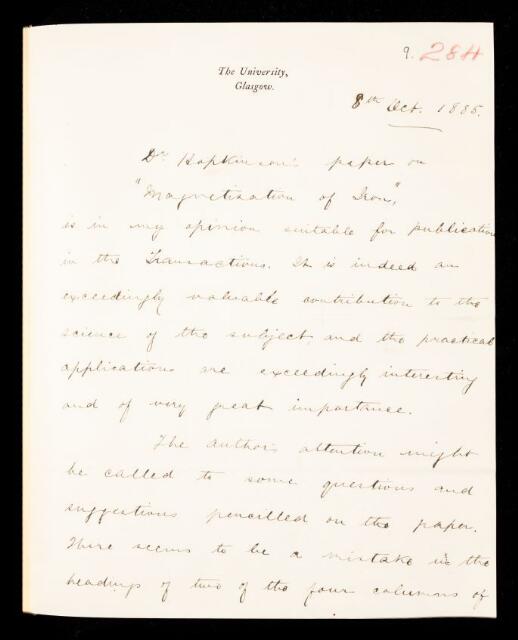 9. 284
The University,
Glasgow.
8th Oct. 1885.
Dr Hopkinson's paper on
"Magnetisation of Iron,"
is in my opinion suitable for publication
in the Transactions. It is indeed an
exceedingly valuable contribution to the
science of the subject and the practical
applications are exceedingly interesting
and of very great importance.
The author's attention might
be called to some questions and
suggestions pencilled on the paper.
There seems to be a mistake in the
headings of two of the four columns of